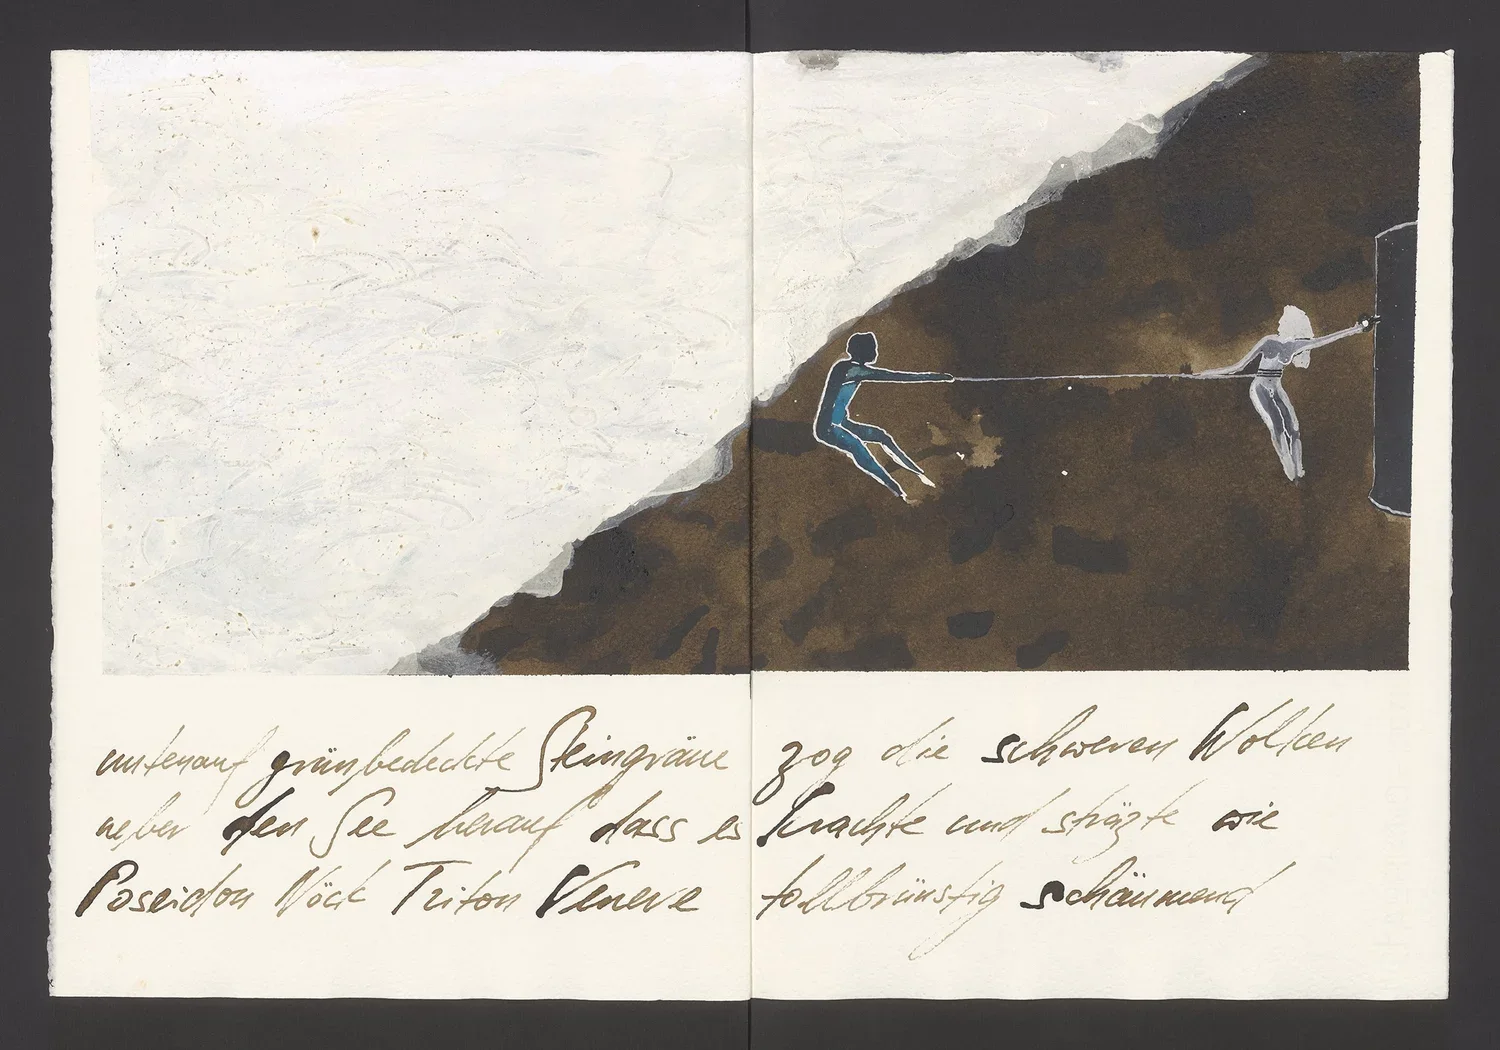 untenauf grünbedeckte Steingräue zog die schweren Wolken
ueber den See herauf dass es krachte und stürzte wie
Poseidon Nöck Triton Venere tollbrünstig schäumend